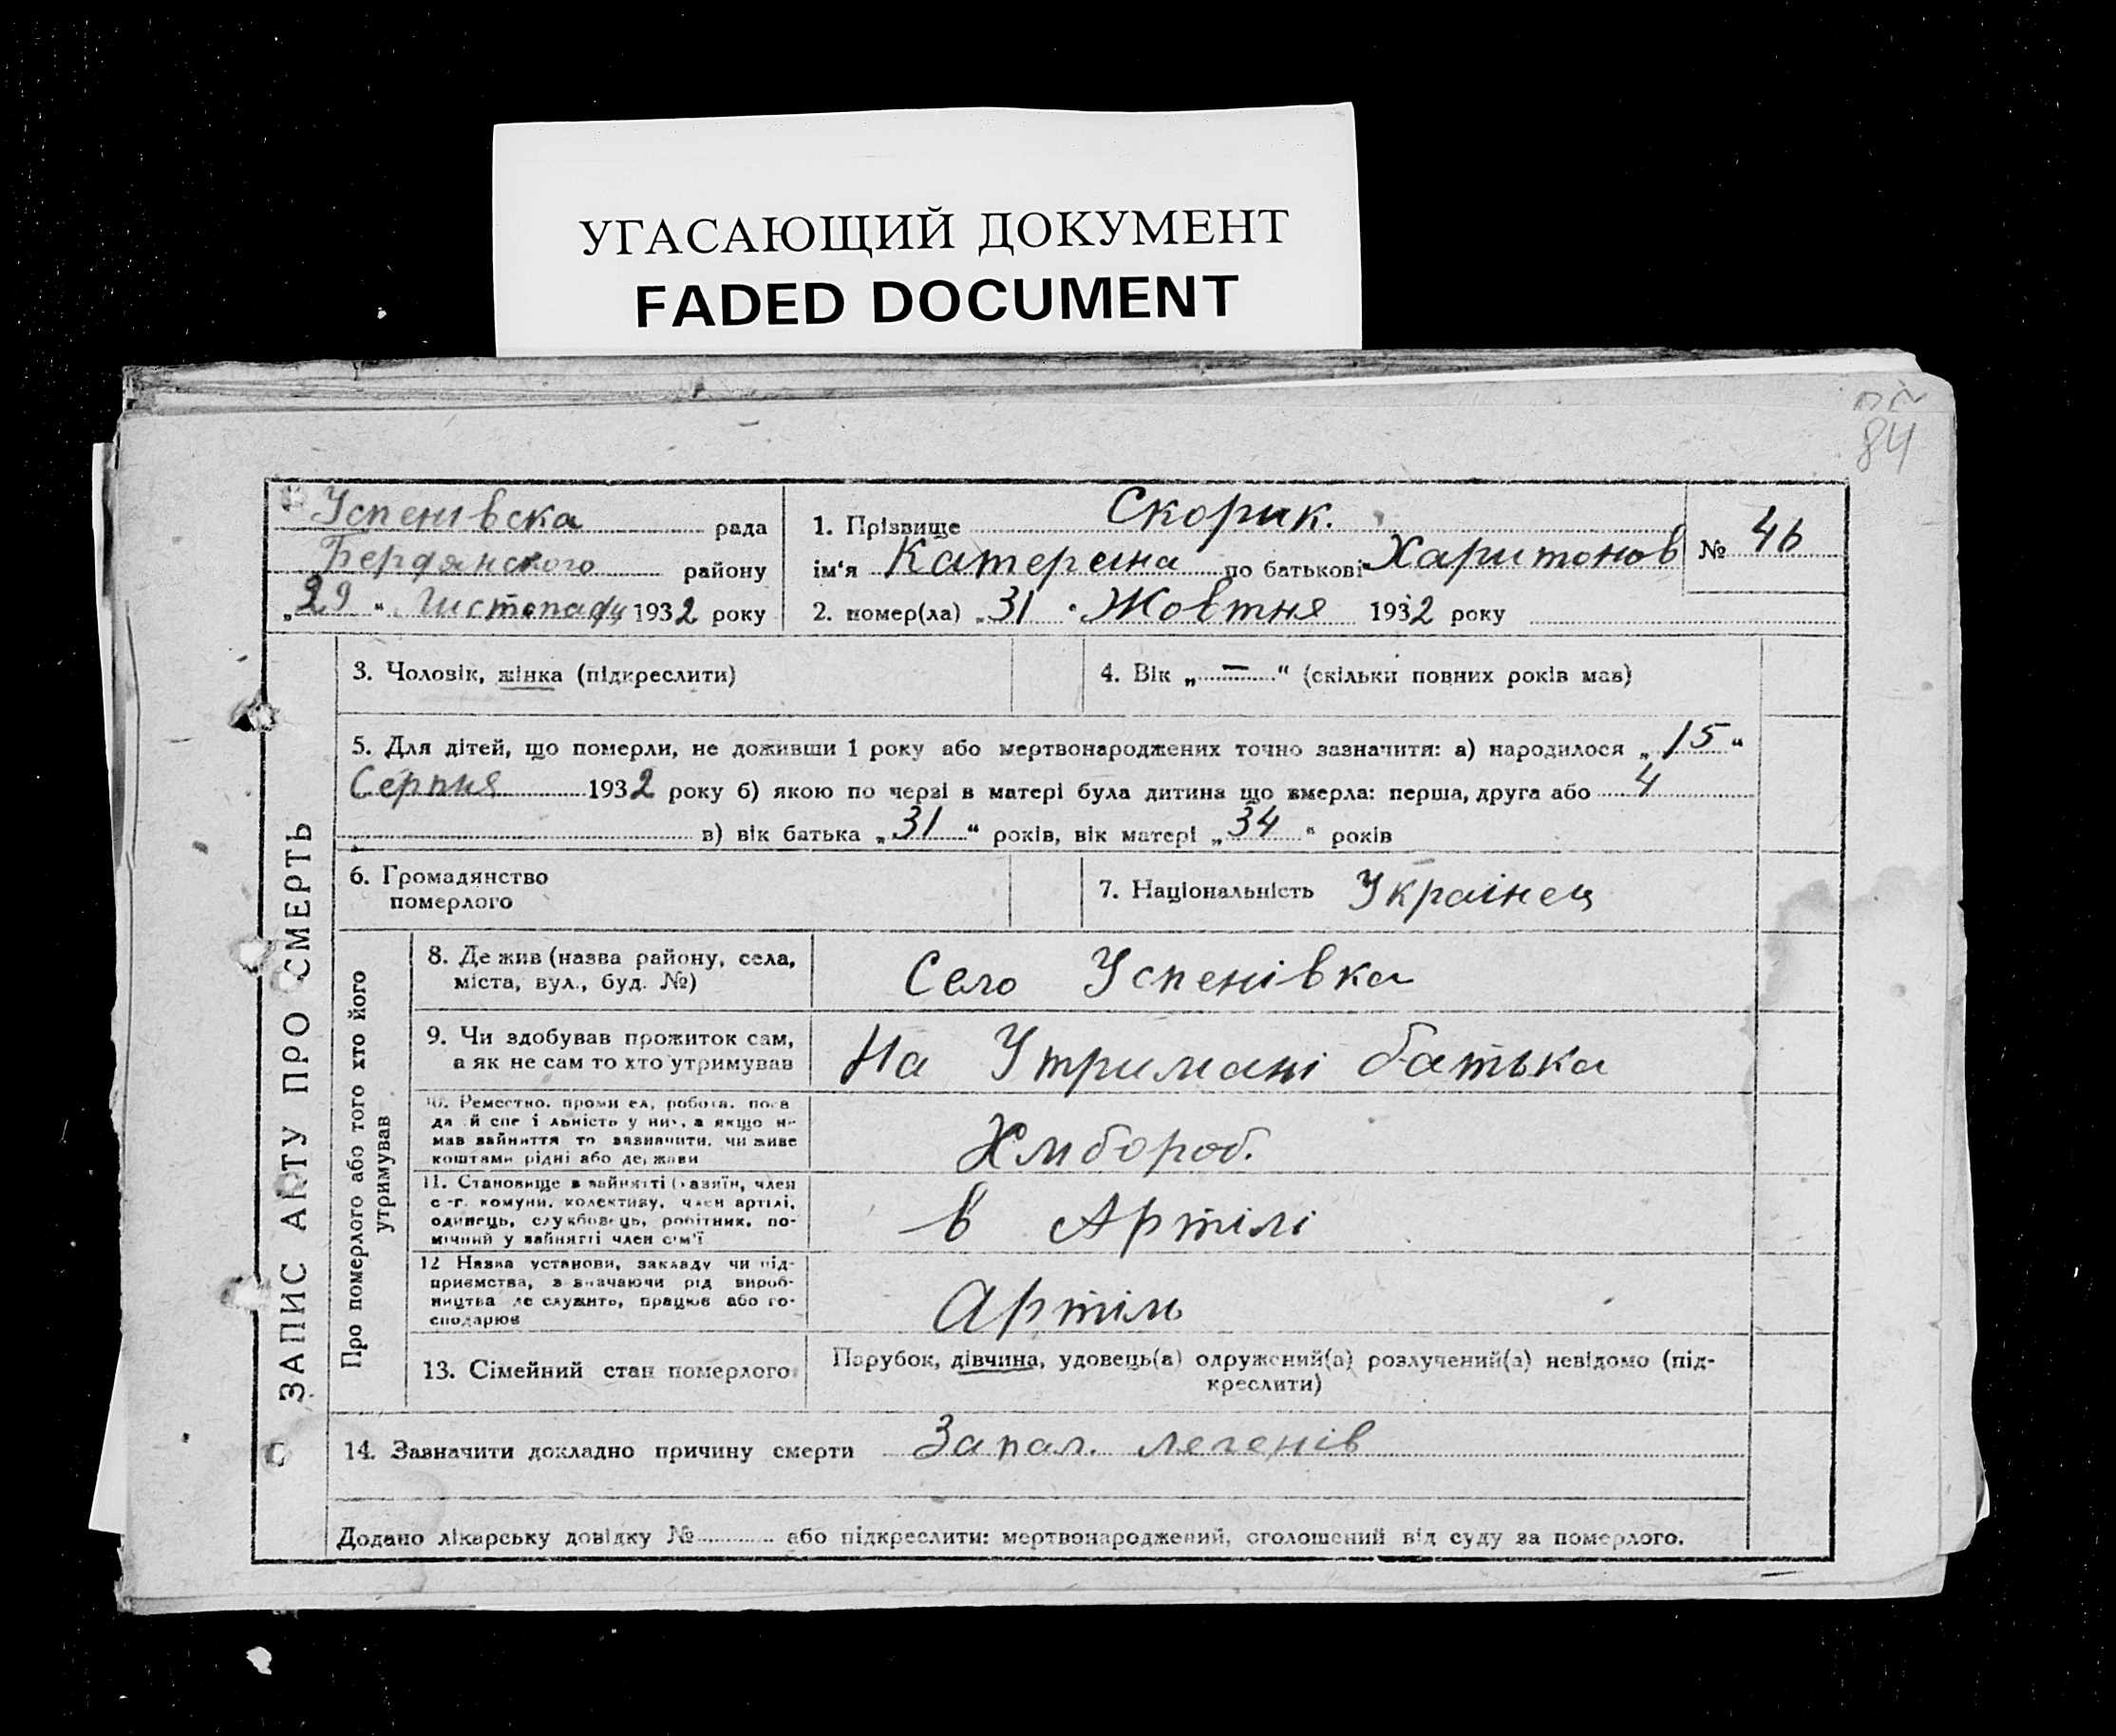 УГАСАЮЩИЙ ДОКУМЕНТ
FADED DOCUMENT
84
Успенівска рада
Бердянского району
„29“ Листопада 1932 року
1. Прізвище Скорик.
ім'я Катерина по батькові Харитонов
2. помер(ла) „31“ Жовтня 1932 року
№ 46
ЗАПИС АКТУ ПРО СМЕРТЬ
3. Чоловік, жінка (підкреслити)
4. Вік „—“ (скільки повних років мав)
5. Для дітей, що померли, не доживши 1 року або мертвонароджених точно зазначити: а) народилося „15“
Серпня 1932 року б) якою по черзі в матері була дитина що вмерла: перша, друга або 4
в) вік батька „31“ років, вік матері „34“ років
6. Громадянство
померлого
7. Національність Українец
Про померлого або того хто його
утримував
8. Де жив (назва району, села,
міста, вул., буд. №)
Село Успенівка
9. Чи здобував прожиток сам,
а як не сам то хто утримував
На Утримані батька
10. Ремество, промисел, робота, поса
да й спеціяльність у них, а якщо не
мав зайняття то зазначити, чи живе
коштами рідні або держави
Хлибороб.
11. Становище в зайнятті (хазяїн, член
с-г. комуни, колективу, член артілі,
одинець, службовець, робітник, по-
мічний у зайнятті член сім'ї
в Артілі
12 Назва установи, закладу чи під-
приємства, зазначаючи рід вироб-
ництва де служить, працює або го-
сподарює
Артіль
13. Сімейний стан померлого
Парубок, дівчина, удовець(а) одружений(а) розлучений(а) невідомо (під-
креслити)
14. Зазначити докладно причину смерти Запал. легенів
Додано лікарську довідку № або підкреслити: мертвонароджений, оголошений від суду за померлого.